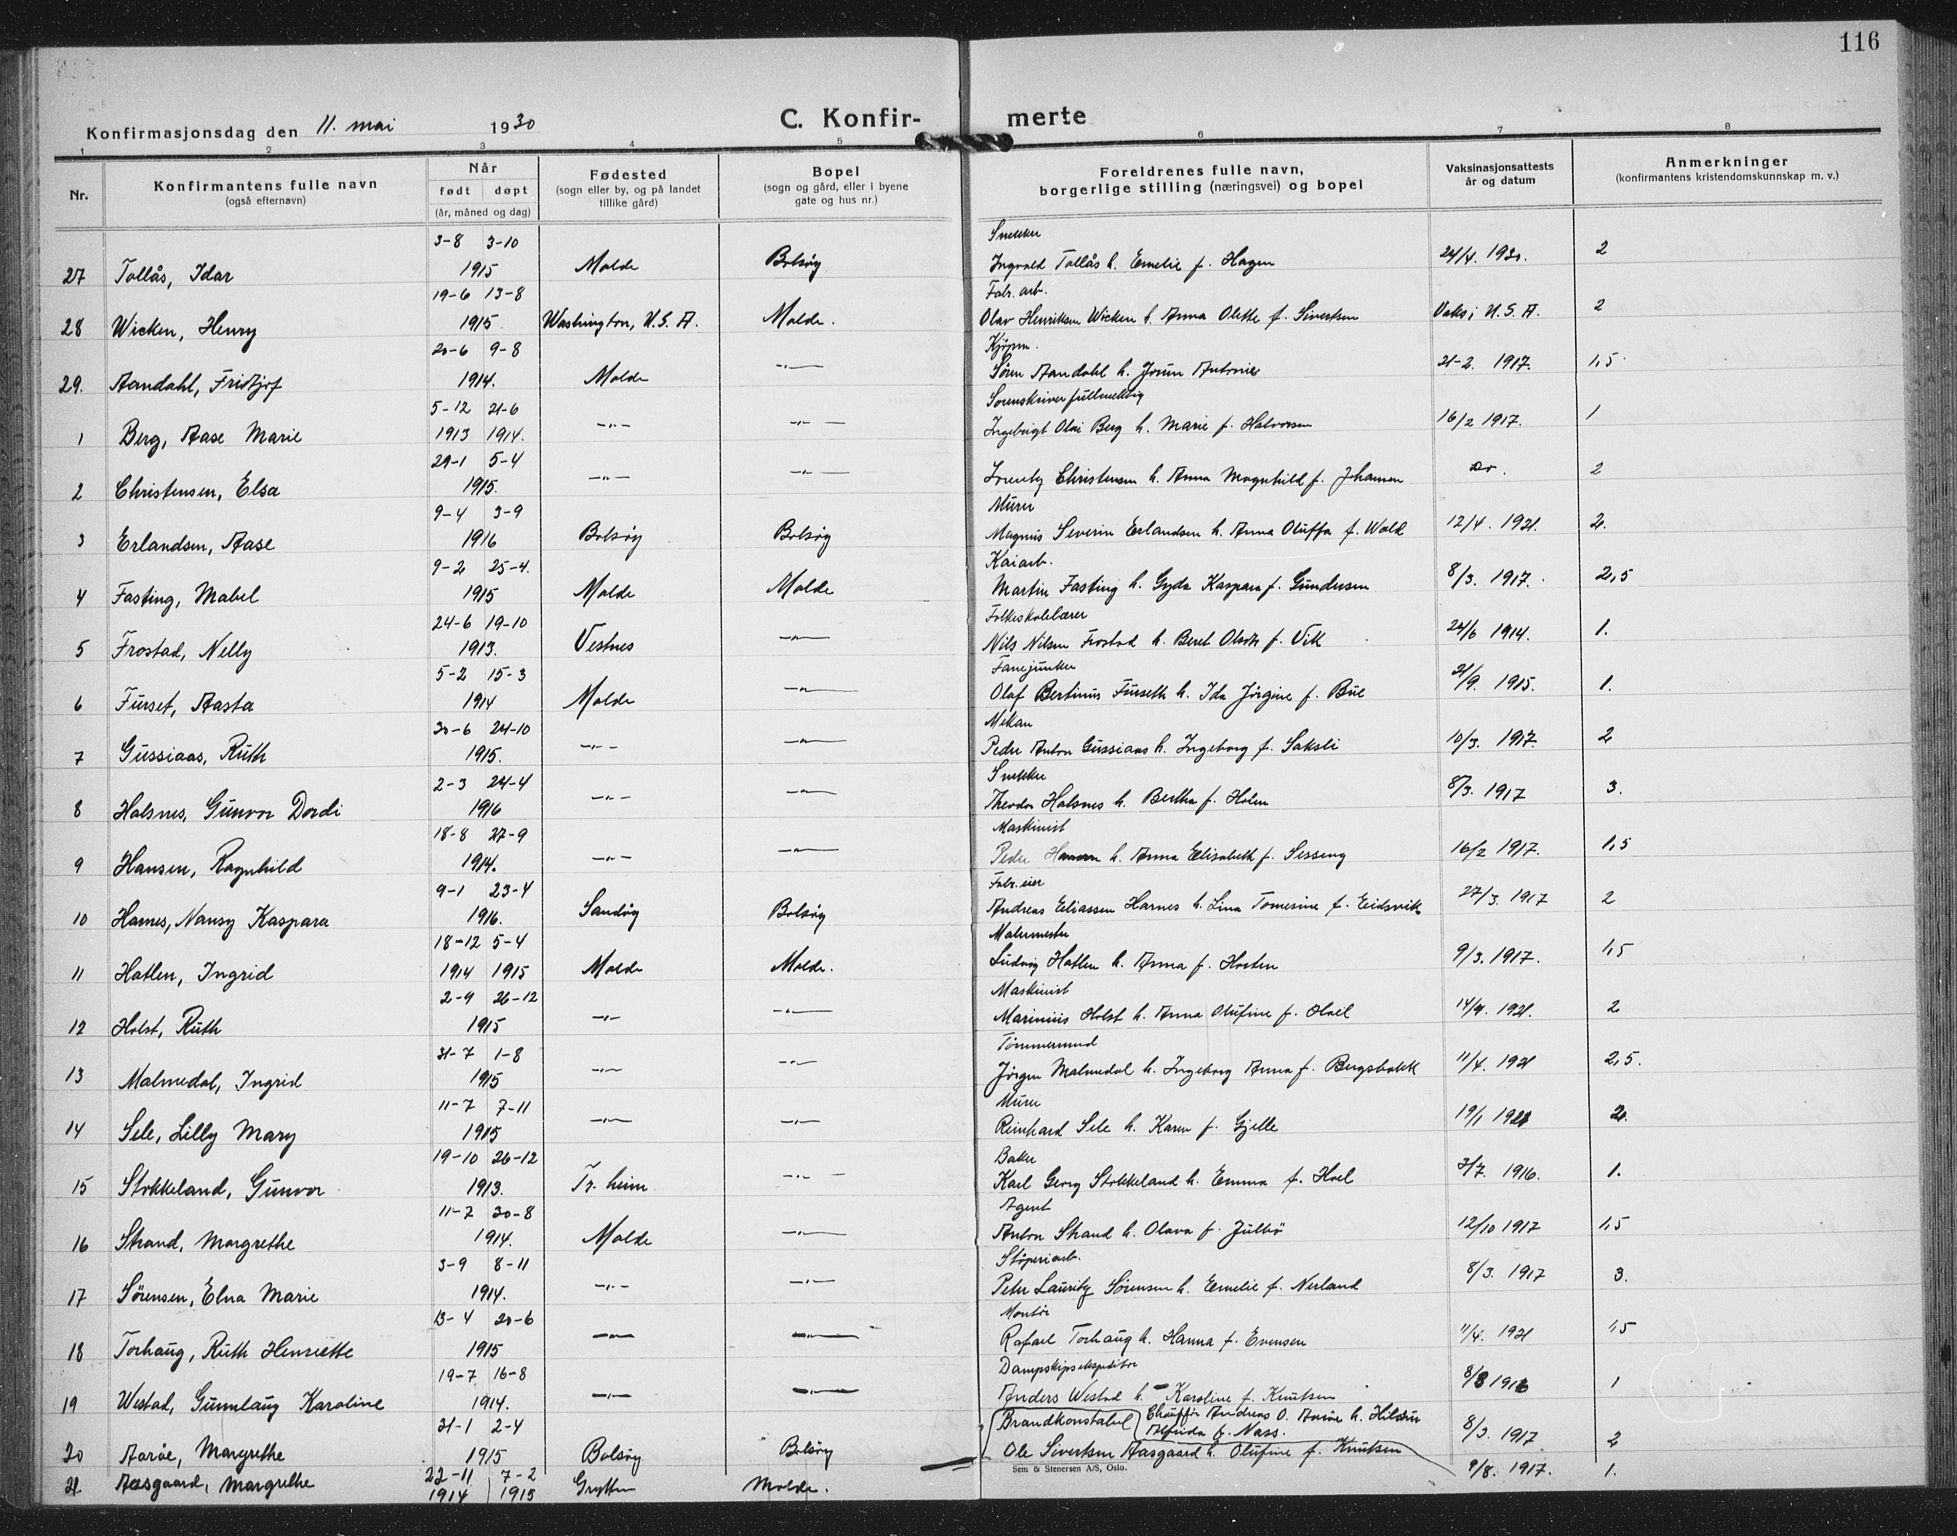 116
Konfirmasjonsdag den 11. mai 1930
C. Konfir- merte
1 2 3 4 5 6 7 8
Nr. Konfirmantens fulle navn (også efternavn) Når født døpt (år, måned og dag) Fødested (sogn eller by, og på landet tillike gård) Bopel (sogn og gård, eller i byene gate og hus nr.) Foreldrenes fulle navn, borgerlige stilling (næringsvei) og bopel Vaksinasjonsattests år og datum Anmerkninger (konfirmantens kristendomskunnskap m. v.)
3-8 3-10 Snekker
27 Tollås, Idar 1915 Molde Bolsøy Ingvald Tollås h. Emelie f. Hagen 24/4. 1930. 2
19-6 13-8 Fabr. arb.
28 Wicken, Henry 1915 Washington, U.S.A. Molde. Olav Henriksen Wicken h. Anna Olette f. Sivertsen Vaks i U.S.A. 2
20-6 9-8 Kjøpm.
29. Aandahl, Fridtjof 1914. Molde -"- Søren Aandahl h. Jorun Antonie 21-2. 1917. 1,5
5-12 21-6 Sorenskriverfullmektig
1 Berg, Aase Marie 1913 1914. -"- -"- Ingebrigt Olai Berg h. Marie f. Halvorsen 16/2 1917. 1
29-1 5-4
2 Christensen, Elsa 1915. -"- -"- Christensen h. Anna Magnhild f. Johansen Do. 2
9-4 3-9 Murer
3 Erlandsen, Aase 1916 Bolsøy Bolsøy Magnus Severin Erlandsen h. Anna Oluffa f. Wold 12/4. 1921. 2.
9-2 25-4. Kaiarb.
4 Fasting, Mabel 1915 Molde Molde Martin Fasting h. Gyda Kaspara f. Gundersen 8/3. 1917. 2,5
24-6 19-10 Folkeskolelærer
5 Frostad, Nelly 1913. Vestnes -"- Nils Nilsen Frostad h. Beret Olsdtr f. Vik 24/6 1914. 1.
5-2 15-3 Fanejunker
6 Furset, Aasta 1914 Molde -"- Olaf Bertinus Furseth h. Ida Jørgine f. Bue 21/9. 1915. 1.
30-6 24-10 Mekan
7 Gussiaas, Ruth 1915. -"- -"- Peder Anton Gussiaas h. Ingeborg f. Saksli 10/3. 1917. 2
2-3 24-4 Snekker
8 Halsnes, Gunvor Dordi 1916 -"- -"- Theodor Halsnes h. Bertha f. Holen 8/3. 1917 3.
18-8 27-9 Maskinist
9 Hansen, Ragnhild 1914. -"- -"- Peder Hansen h. Anna Elisabeth f. Sesseng 16/2 1917. 1,5
9-1 23-4 Fabr.eier
10 Harnes, Nansy Kaspara 1916. Sandøy Bolsøy Andreas Eliassen Harnes h. Lina Tomesine f. Eidsvik 27/3. 1917 2
18-12 5-4 Malermester
11 Hatlen, Ingrid 1914 1915 Molde Molde. Ludvig Hatlen h. Anna f. Horten 9/3. 1917. 1,5
2-9 26-12 Maskinist
12 Holst, Ruth 1915 -"- -"- Marinius Holst h. Anna Olufine f. Hoel 14/4. 1921. 2
31-7 1-8 Tømmermand
13 Malmedal, Ingrid 1915 -"- -"- Jørgen Malmedal h. Ingeborg Anna f. Bergsbakk 11/4. 1921 2,5.
11-7 7-11 Murer
14 Sele, Lilly Mary 1915 -"- -"- Reinhard Sele h. Karen f. Gjelle 19/1 1921 2.
19-10 26-12 Baker
15 Stokkeland, Gunvor 1913. Tr.heim -"- Karl Georg Stokkeland h. Emma f. Hoel 3/7. 1916. 1.
11-7 30-8 Agent
16 Strand, Margrethe 1914. Molde -"- Anton Strand h. Olava f. Julbø 12/10 1917 1,5
3-9 8-11 Støperiarb.
17 Sørensen, Elna Marie 1914. -"- -"- Peter Lauritz Sørensen h. Emelie f. Nerland 8/3. 1917 3.
13-4 20-6 Montør
18 Torhaug, Ruth Henriette 1915 -"- -"- Rafael Torhaug h. Hanna f. Evensen 11/4. 1921 1,5
19-7 16-8 Dampskipsekspeditør
19 Westad, Gunnlaug Karoline 1914. -"- -"- Anders Westad h. Karoline f. Knutsen 8/8 1916 1
31-1 2-4 Brandkonstabel Chauffør Andreas O. Aarøe h. Hildur Alfrida f. Nass. 8/3. 1917
20 Aarøe, Margrethe 1915 Bolsøy Bolsøy Ole Sivertsen Aasgaard h. Olufine f. Knutsen 2
Sem & Stenersen A/S, Oslo.
21 Aasgaard, Margrethe 22-11 1914 7-2 1915 Grytten Molde. 9/8. 1917. 1.